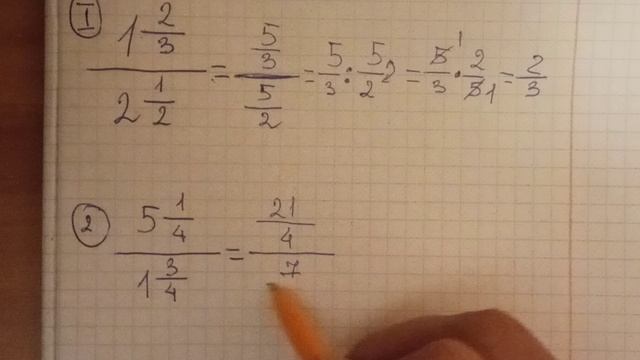 ① 1 2/3 / 2 1/2 = 5/3 / 5/2 = 5/3 : 5/2 = 5/3 · 2/5 1 1 = 2/3
② 5 1/4 / 1 3/4 = 21/4 / 7